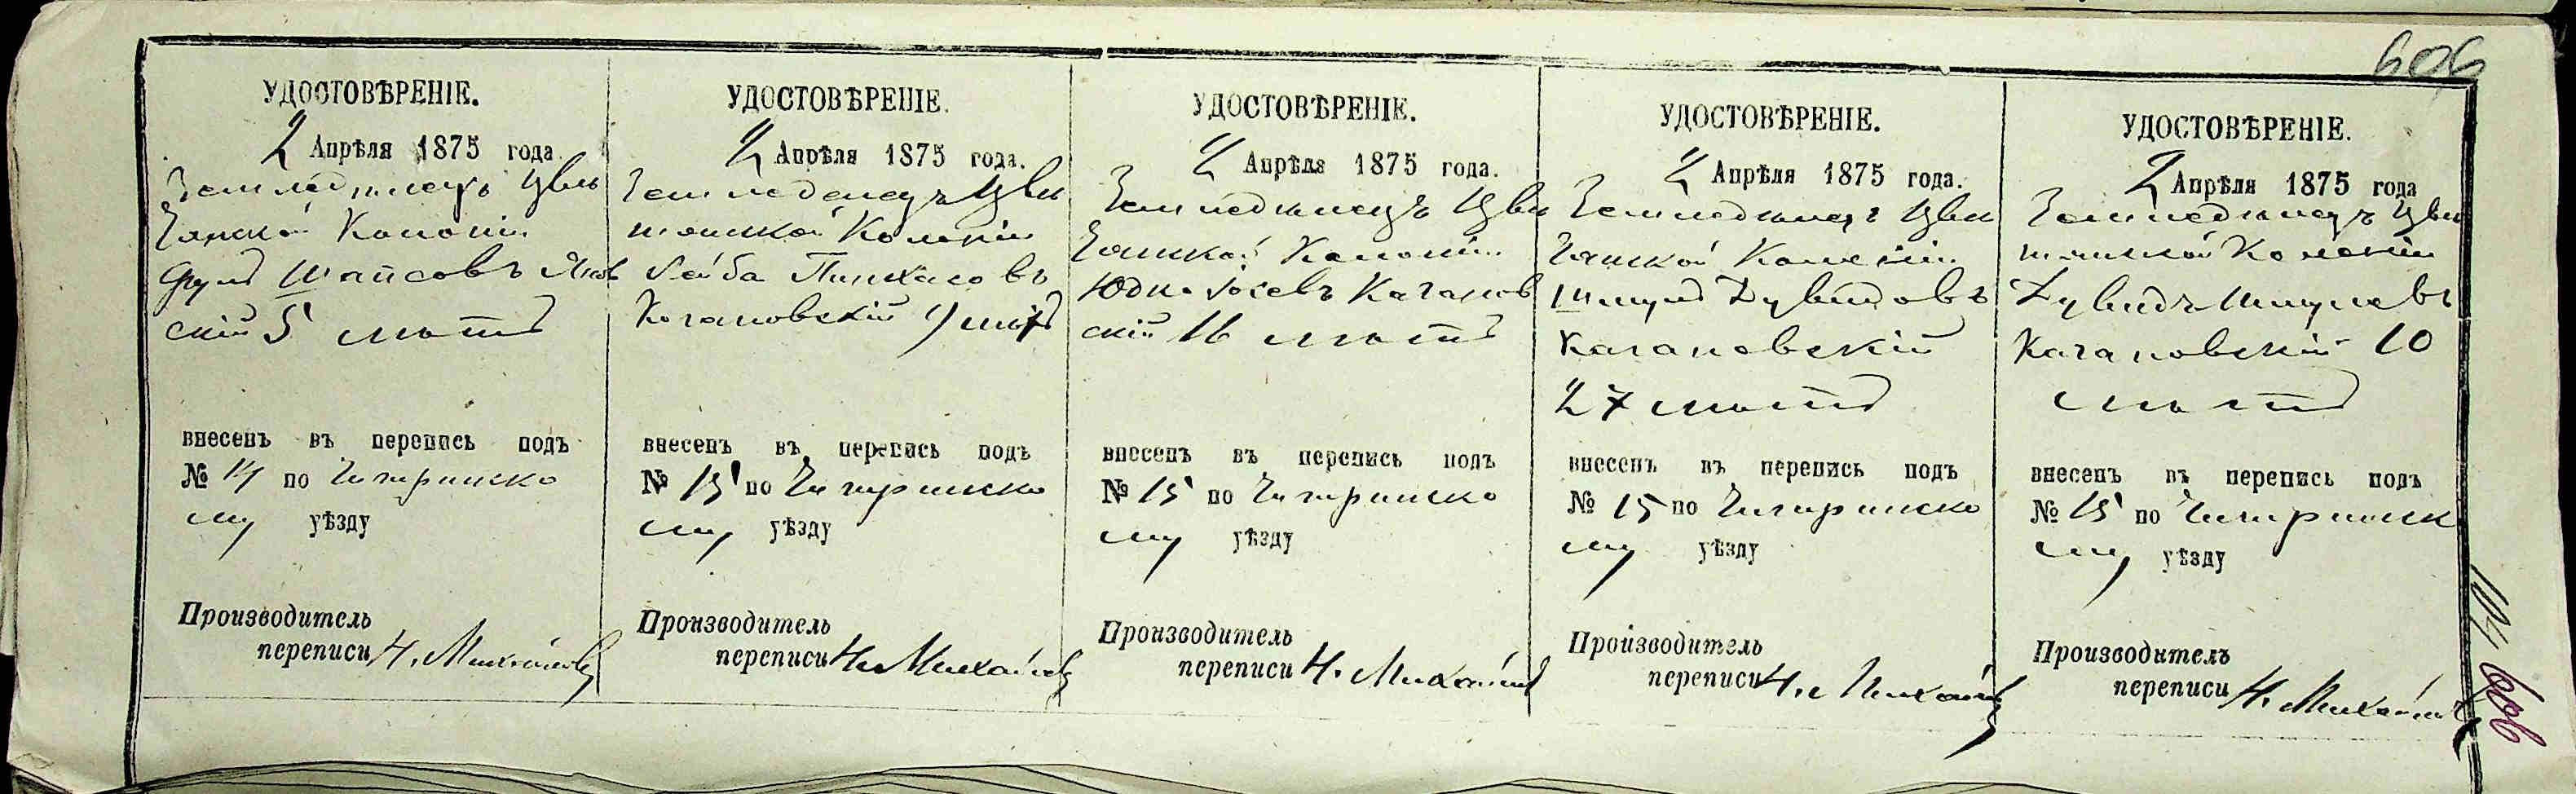 606
УДОСТОВѢРЕНІЕ.
2 Апрѣля 1875 года.
Земледѣлецъ Цви
танской Колоніи
Шапсовъ
скій 5 лѣтъ
внесенъ въ перепись подъ
№ 14 по Чигиринско
му уѣзду
Производитель
переписи Н. Михайловъ
УДОСТОВѢРЕНІЕ.
2 Апрѣля 1875 года.
Земледелецъ Цви
танской Колоніи
Лейба Пинхасовъ
Качановскій 9 лѣтъ
внесенъ въ перепись подъ
№ 15 по Чигиринско
му уѣзду
Производитель
переписи Н. Михайловъ
УДОСТОВѢРЕНІЕ.
2 Апрѣля 1875 года.
Земледѣлецъ Цви
танской Колоніи
Юдко Іосевъ Качанов
скій 16 лѣтъ
внесенъ въ перепись подъ
№ 15 по Чигиринско
му уѣзду
Производитель
переписи Н. Михайловъ
УДОСТОВѢРЕНІЕ.
2 Апрѣля 1875 года.
Земледѣлецъ Цви
танской Колоніи
Шмулъ Дувидовъ
Качановскій
27 лѣтъ
внесенъ въ перепись подъ
№ 15 по Чигиринско
му уѣзду
Производитель
переписи Н. Михайловъ
УДОСТОВѢРЕНІЕ.
2 Апрѣля 1875 года
Земледѣлецъ Цви
танской Колоніи
Дувидъ Шмулевъ
Качановскій 10
лѣтъ
внесенъ въ перепись подъ
№ 15 по Чигиринск
му уѣзду
Производитель
переписи Н. Михайловъ
606